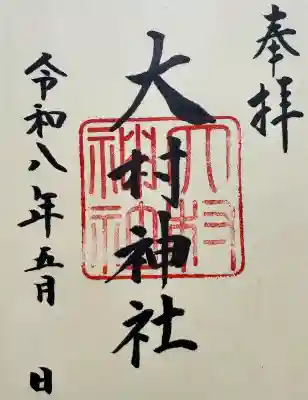 奉拝
大村神社
大村神社
令和八年五月 日